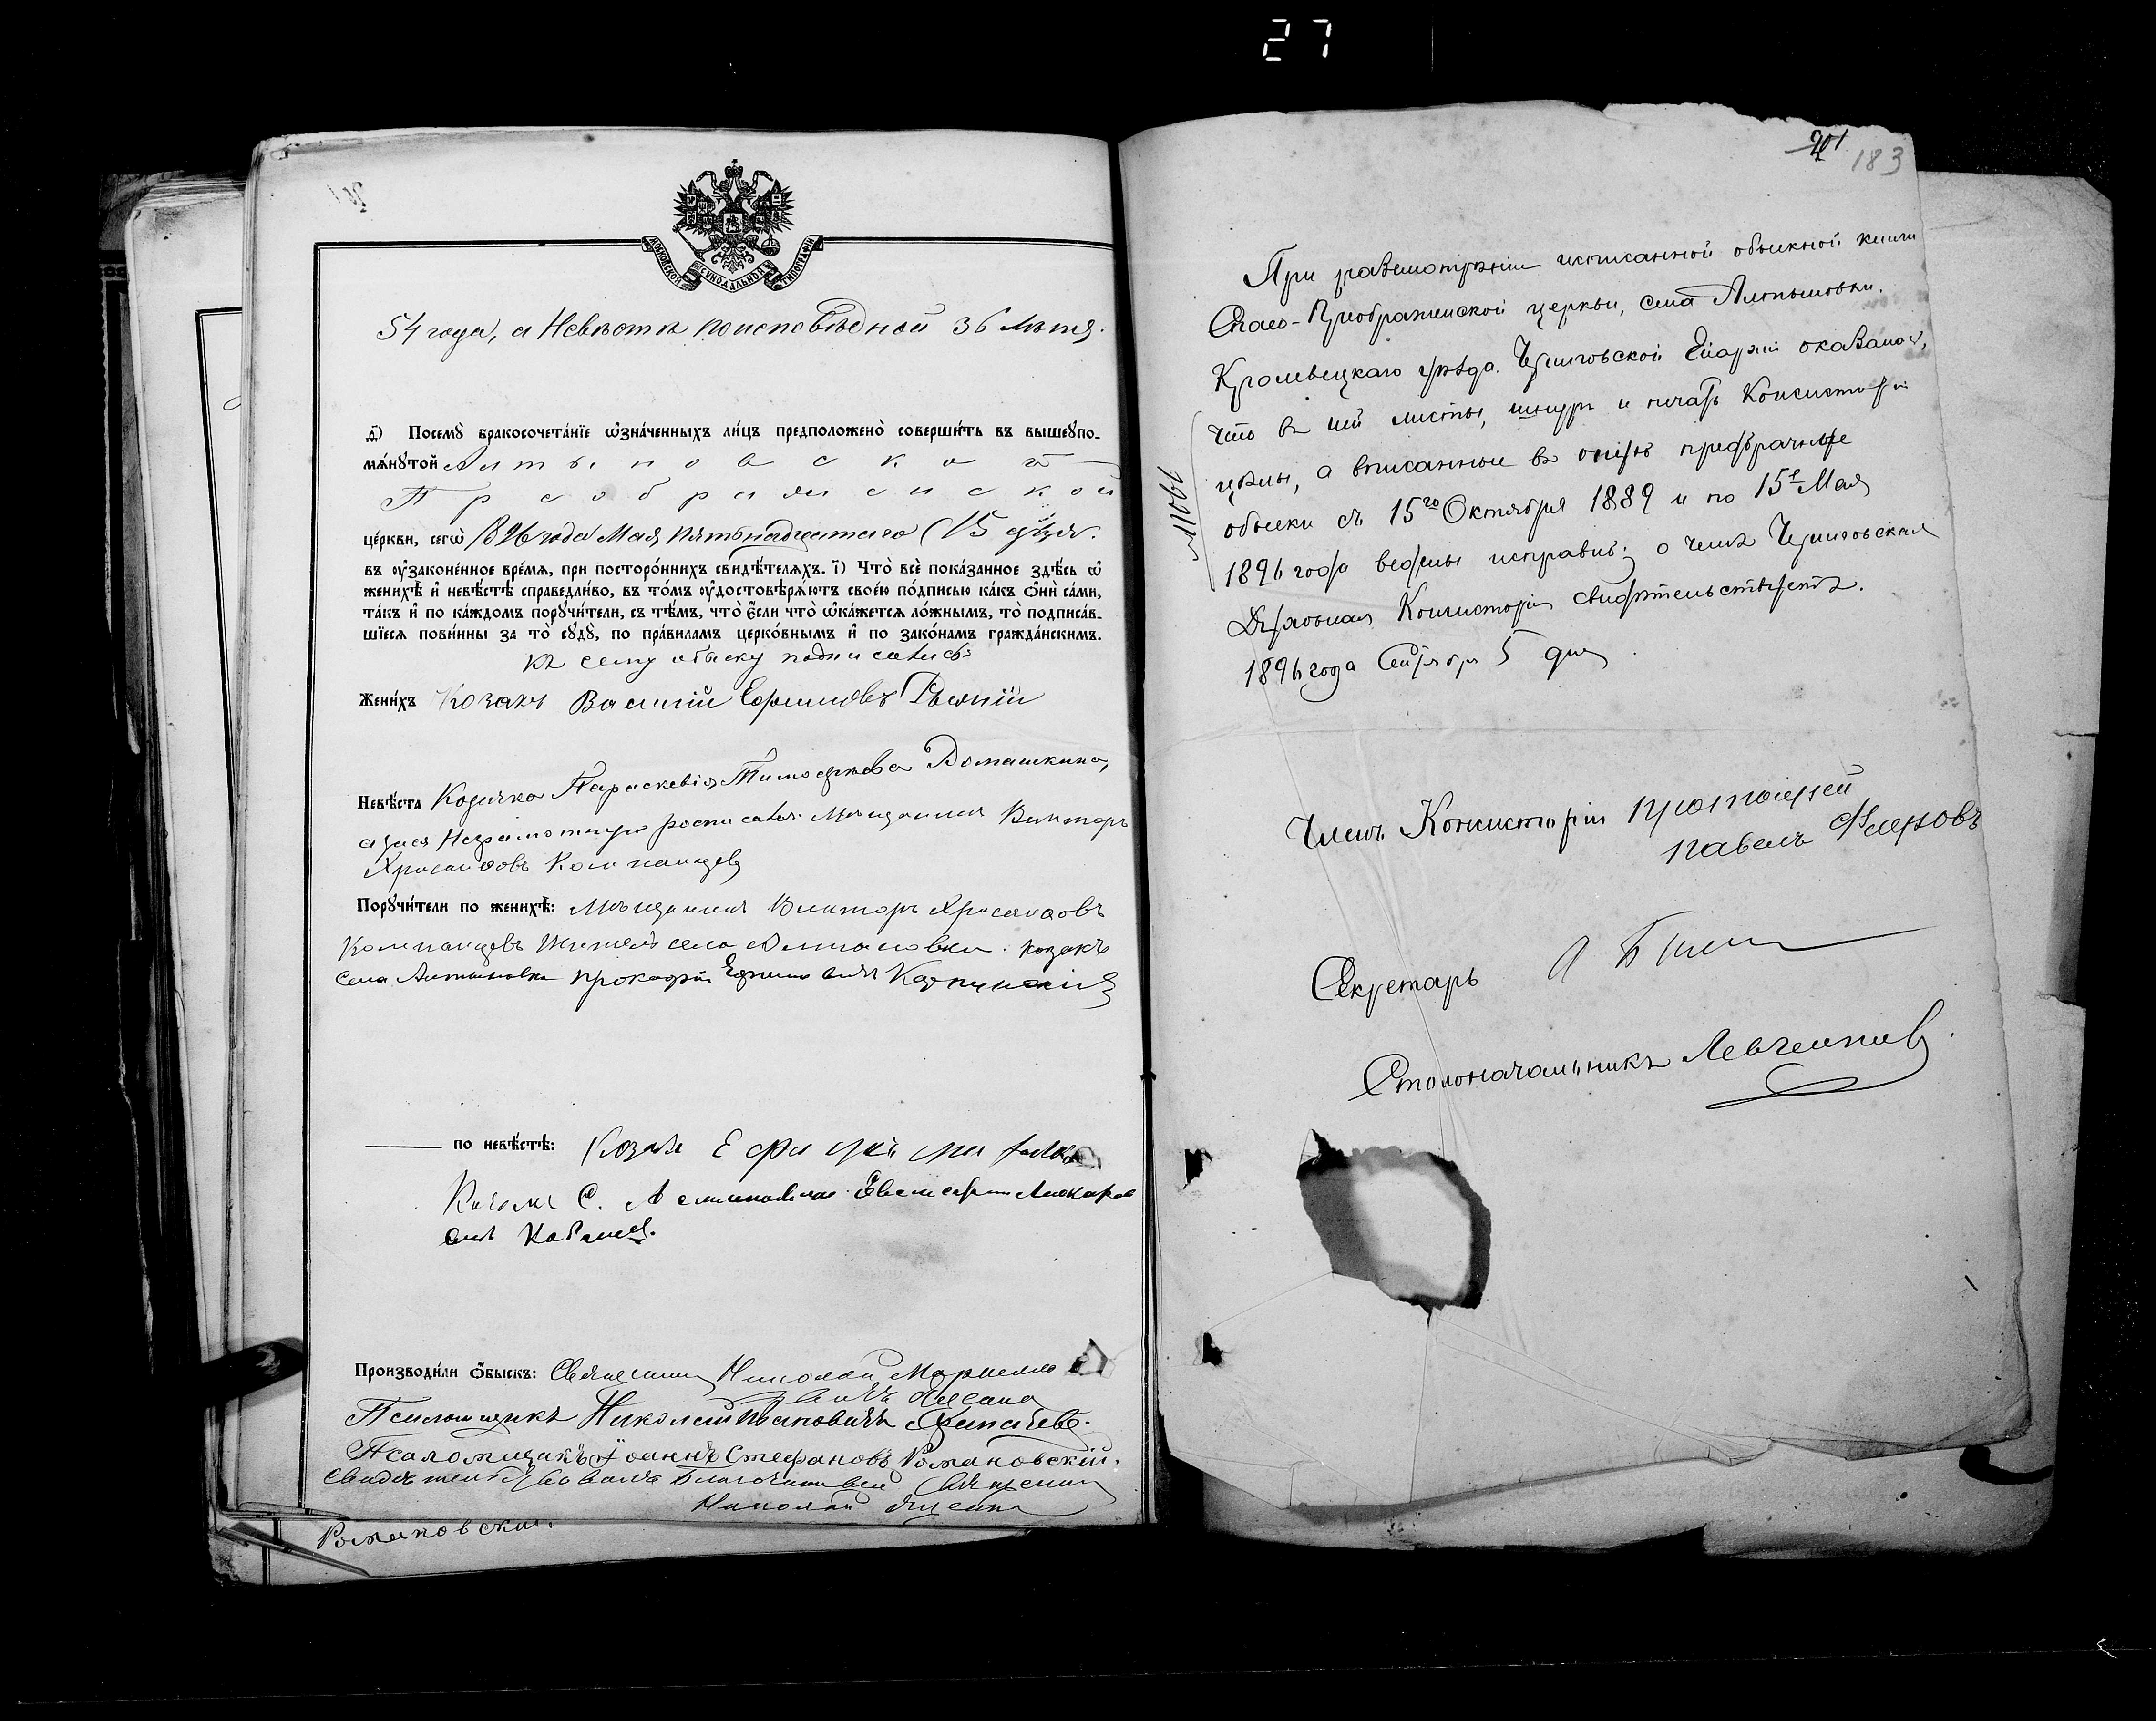 27
МОСКОВСКОЙ СѴНОДАЛЬНОЙ ТИПОГРАФІИ
54 года, а Невѣста по исповѣдной 36 лѣтъ.
д҃) Посемꙋ̀ бракосочета́нїе ѡ҆зна́ченныхъ ли́цъ предположено̀ соверши́ть въ вышеꙋпо-
мѧ́нꙋтой Алтыновской
Преображенской
це́ркви, сегѡ̀ 896 года Мая пятьнадцатаго (15 дня.
въ ᲂу҆зако́ненное вре́мѧ, при посторо́ннихъ свидѣ́телѧхъ. і҃) Что̀ всѐ пока́занное здѣ́сь ѡ҆
женихѣ̀ и҆ невѣ́стѣ справедли́во, въ то́мъ ᲂу҆достовѣрѧ́ютъ свое́ю по́дписью ка́къ ѻ҆нѝ са́ми,
та́къ и҆ по ка́ждомъ порꙋчи́тели, съ тѣ́мъ, что̀ є҆́сли что̀ ѡ҆ка́жетсѧ ло́жнымъ, то̀ подписа́в-
шїесѧ пови́нны за то̀ сꙋдꙋ̀, по пра́виламъ церко́внымъ и҆ по зако́намъ гражда́нскимъ.
къ сему обыску подписались
Жени́хъ Козакъ Василій Ефимовъ
Невѣ́ста Козачка Параскевія Тимофеева Домашкина,
а за нея неграмотную росписался Мѣщанинъ Викторъ
Хрисанфовъ Компанцевъ
Порꙋчи́тели по женихѣ̀: Мѣщанинъ Викторъ Хрисанфовъ
Компанцевъ Житель села Алтыновки. козакъ
села Алтыновки Прокофій Ефимовъ
по невѣ́стѣ: Козакъ
Козакъ С. Алтыновки
Производи́ли ѻ҆́быскъ: Священникъ Николай
Псаломщикъ Николай
Псаломщикъ Іоаннъ Стефановъ Романовскій.
Свидѣтельствовалъ Благочинный Священникъ
Николай
Романовскій.
201 183
При разсмотрѣніи исписанной обыскной книги
Спасо-Преображенской церкви, села Алтыновки.
Кролевецкаго уѣзда Черниговской Епархіи оказалось,
что въ ней листы, шнуръ и печать Консисторіи
цѣлы, а вписанные въ оную предбрачные
обыски съ 15го Октября 1889 и по 15е Мая
1896 года ведены исправно; о чемъ Черниговская
Духовная Консисторія свидѣтельствуетъ.
1896 года Сентября 5 дня.
№11061
Членъ Консисторіи Протоіерей
Павелъ
Секретарь
Столоначальникъ